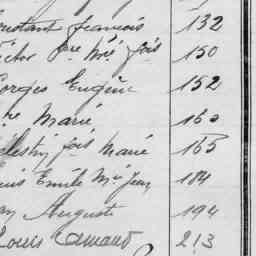 onstant francois 132
ictor Pre Mie fois 150
orges Eugène 152
re Marie 160
lestin fois Marie 165
uis Emile Mie Jean 184
an Auguste 194
Louis Amand 213